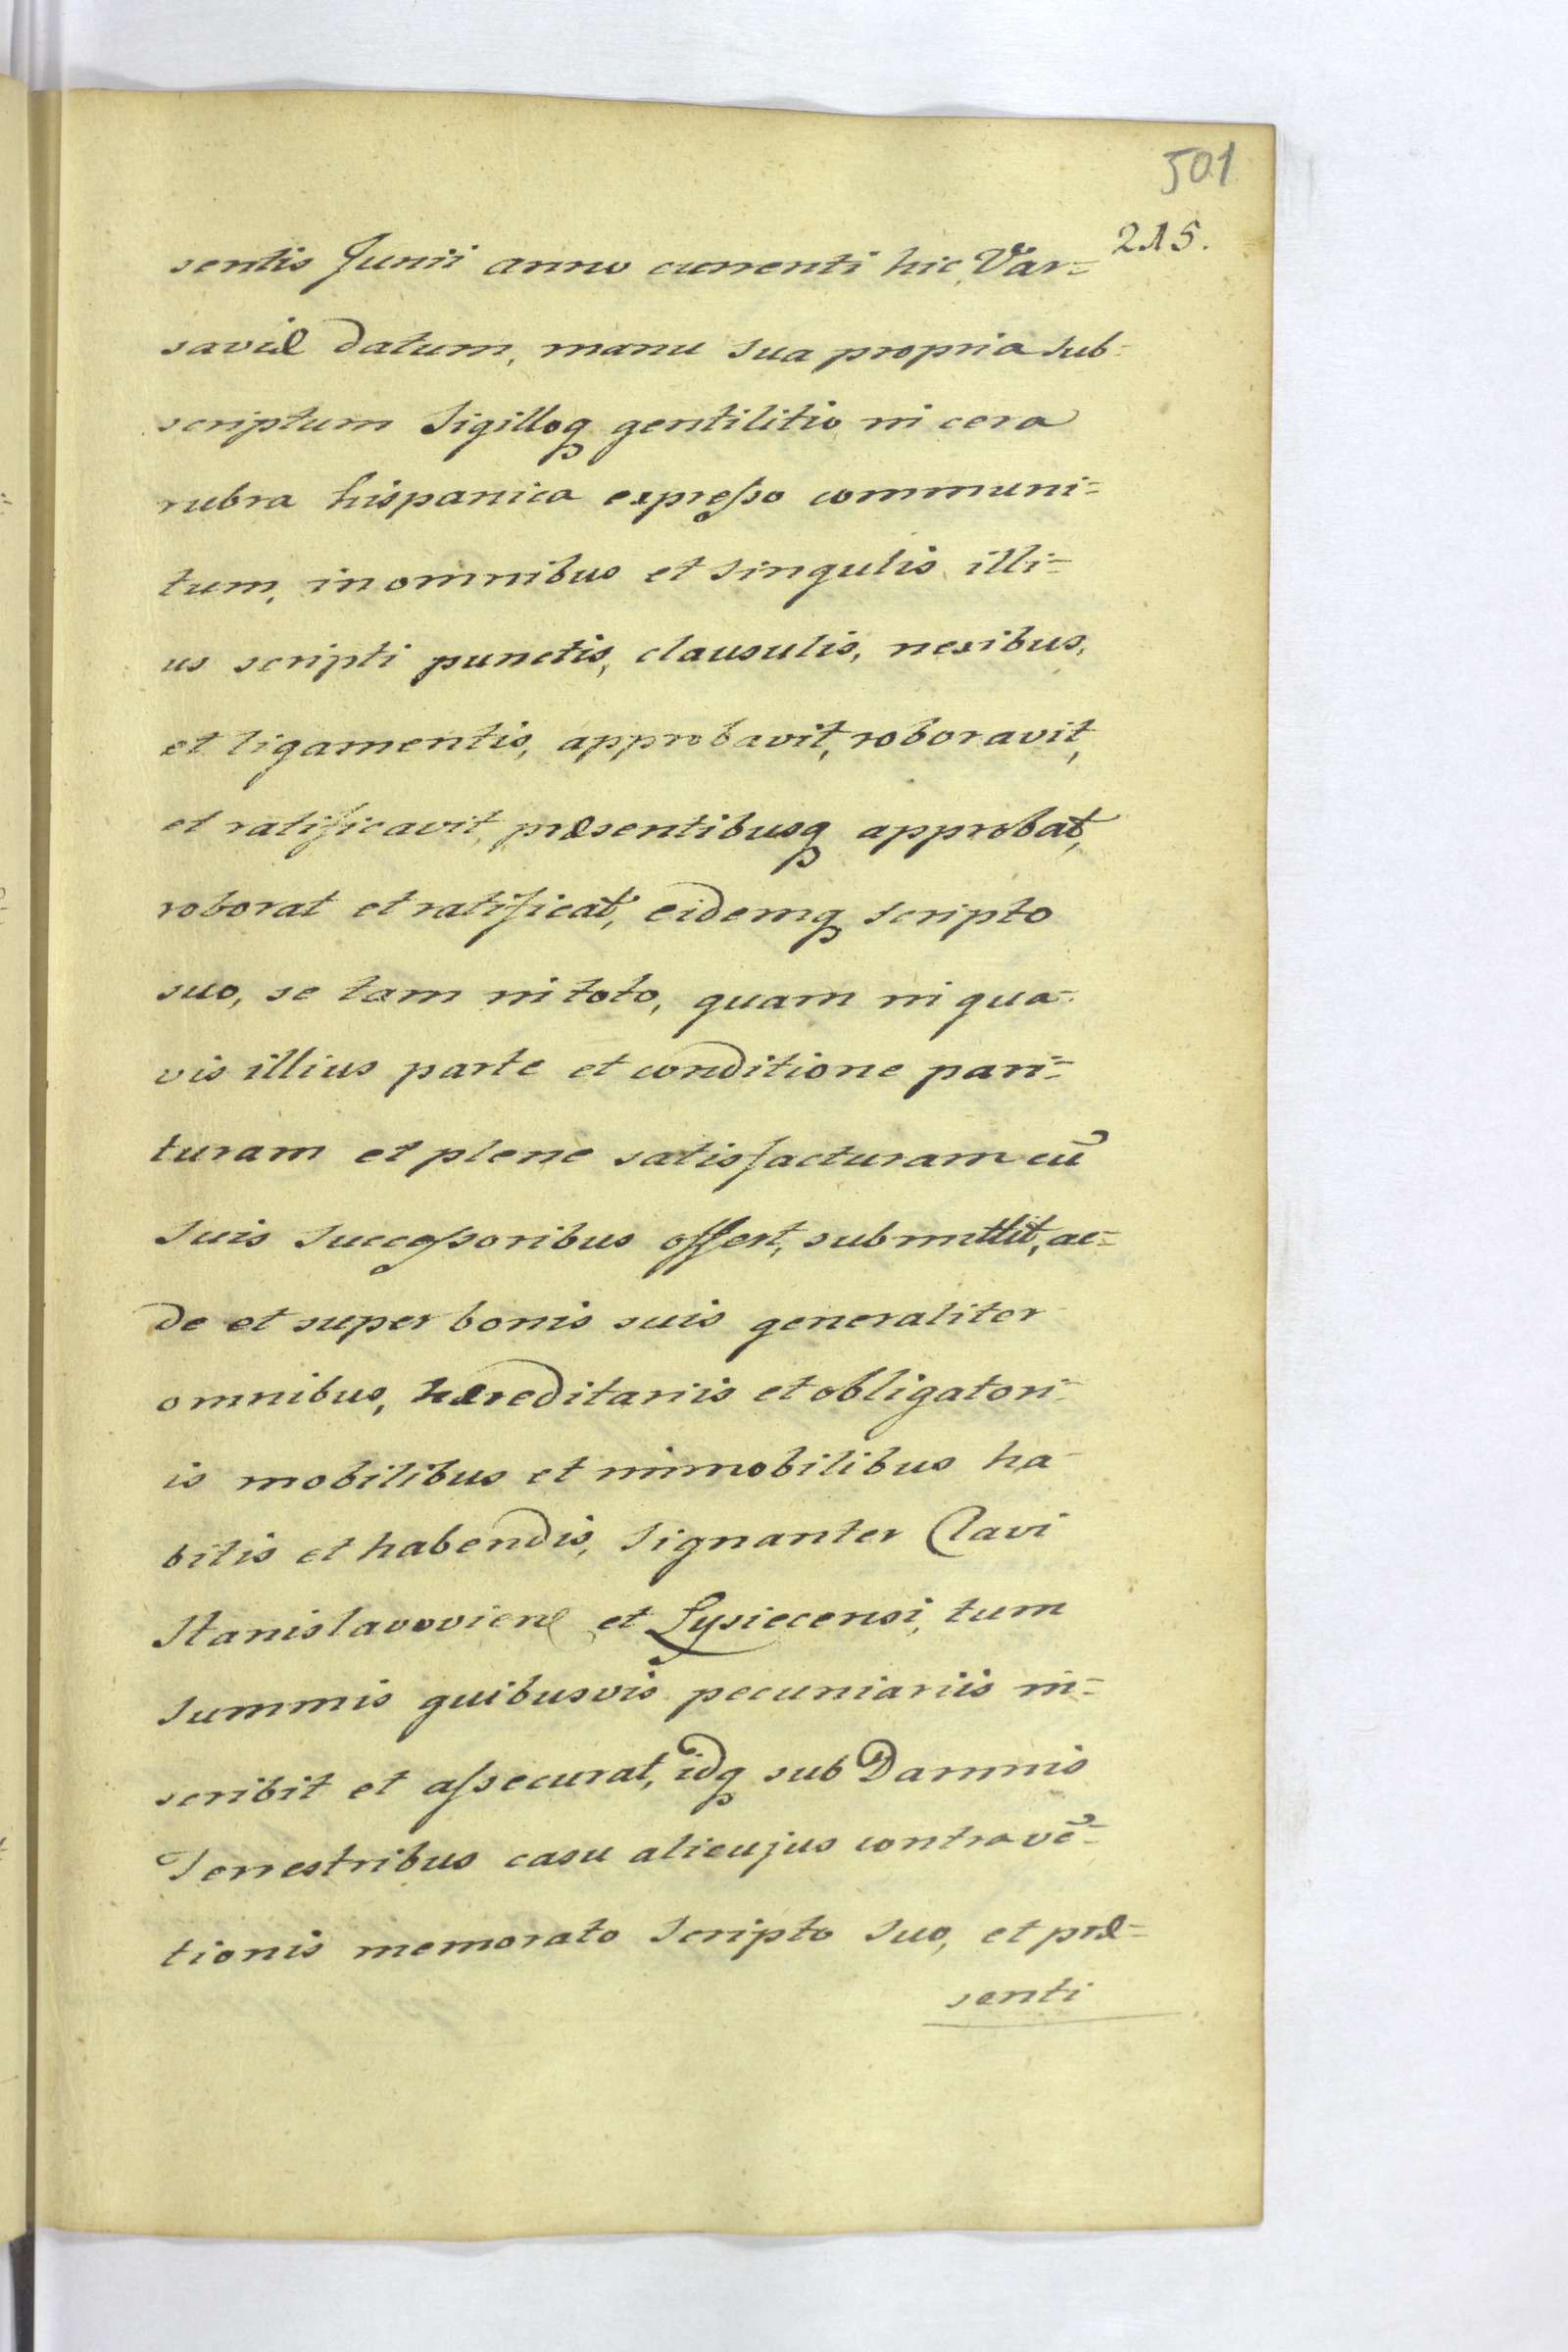 501
215.
sentis Junii anno currenti hic Var=
saviæ datum, manu sua propria sub=
scriptum Sigilloq gentilitio in cera
rubra hispanica expreſso communi=
tum, in omnibus et singulis illi=
us scripti punctis, clausulis, nexibus,
et ligamentis, approbavit, roboravit,
et ratificavit, præsentibusq approbat,
roborat et ratificat, eidemq scripto
suo, se tam in toto, quam in qua=
vis illius parte et conditione pari=
turam et plene satisfacturam cū
suis succeſsoribus offert, submittit, ac=
de et super bonis suis generaliter
omnibus, hæreditariis et obligatori=
is mobilibus et immobilibus ha=
bitis et habendis, signanter Clavi
Stanislavovien et Lysiecensi, tum
summis quibusvis pecuniariis in=
scribit et aſsecurat, idq sub Damnis
Terrestribus casu alicujus contravē=
tionis memorato scripto suo, et præ=
senti